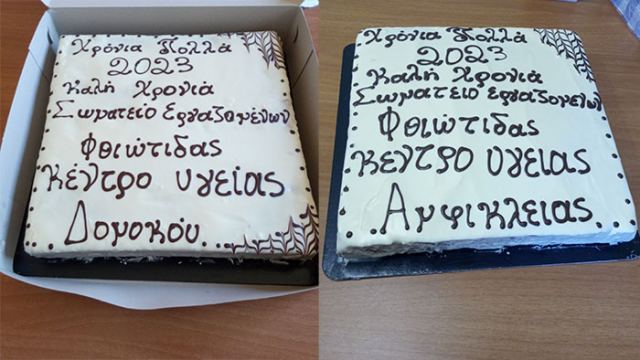 Χρόνια Πολλά
2023
Καλή Χρονιά
Σωματείο Εργαζομένων
Φθιώτιδας
Κέντρο Υγείας
Δομοκού
Χρόνια Πολλά
2023
Καλή Χρονιά
Σωματείο Εργαζομένων
Φθιώτιδας
Κέντρο Υγείας
Αμφίκλειας